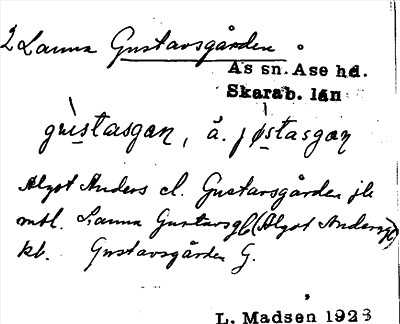 2 Lanna Gustavsgården
Ås sn. Åse hd.
Skarab. län
gustasgaɲ, ä. jøstasgaɲ
Algot Anders el. Gustavsgården jb
mtl. Lanna Gustavsgb (Algot Anders
kb. Gustavsgården G.
L. Madsen 1923